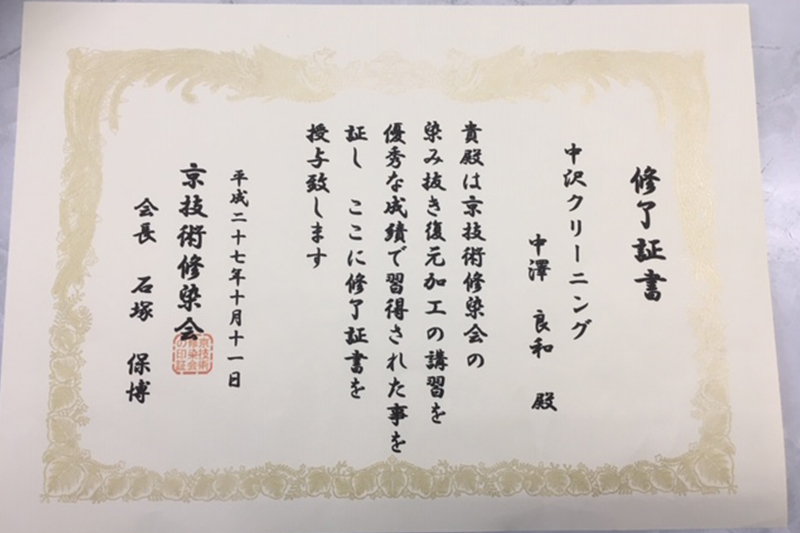 修了証書
中沢クリーニング
中澤 良和 殿
貴殿は京技術修染会の
染み抜き復元加工の講習を
優秀な成績で習得された事を
証し ここに修了証書を
授与致します
平成二十七年十月十一日
京技術修染会
会長 石塚 保博
京技術
修染会
の印証